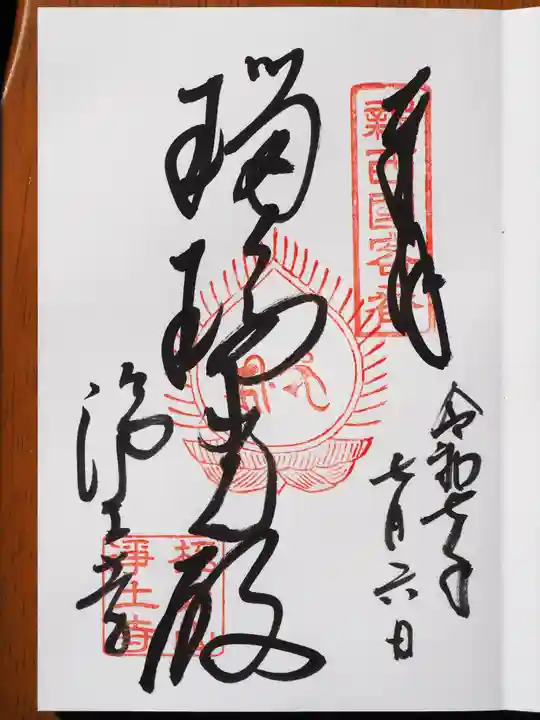 奉拝
新西国客番
令和七年
七月六日
瑠璃光殿
浄土寺
極楽山
浄土寺